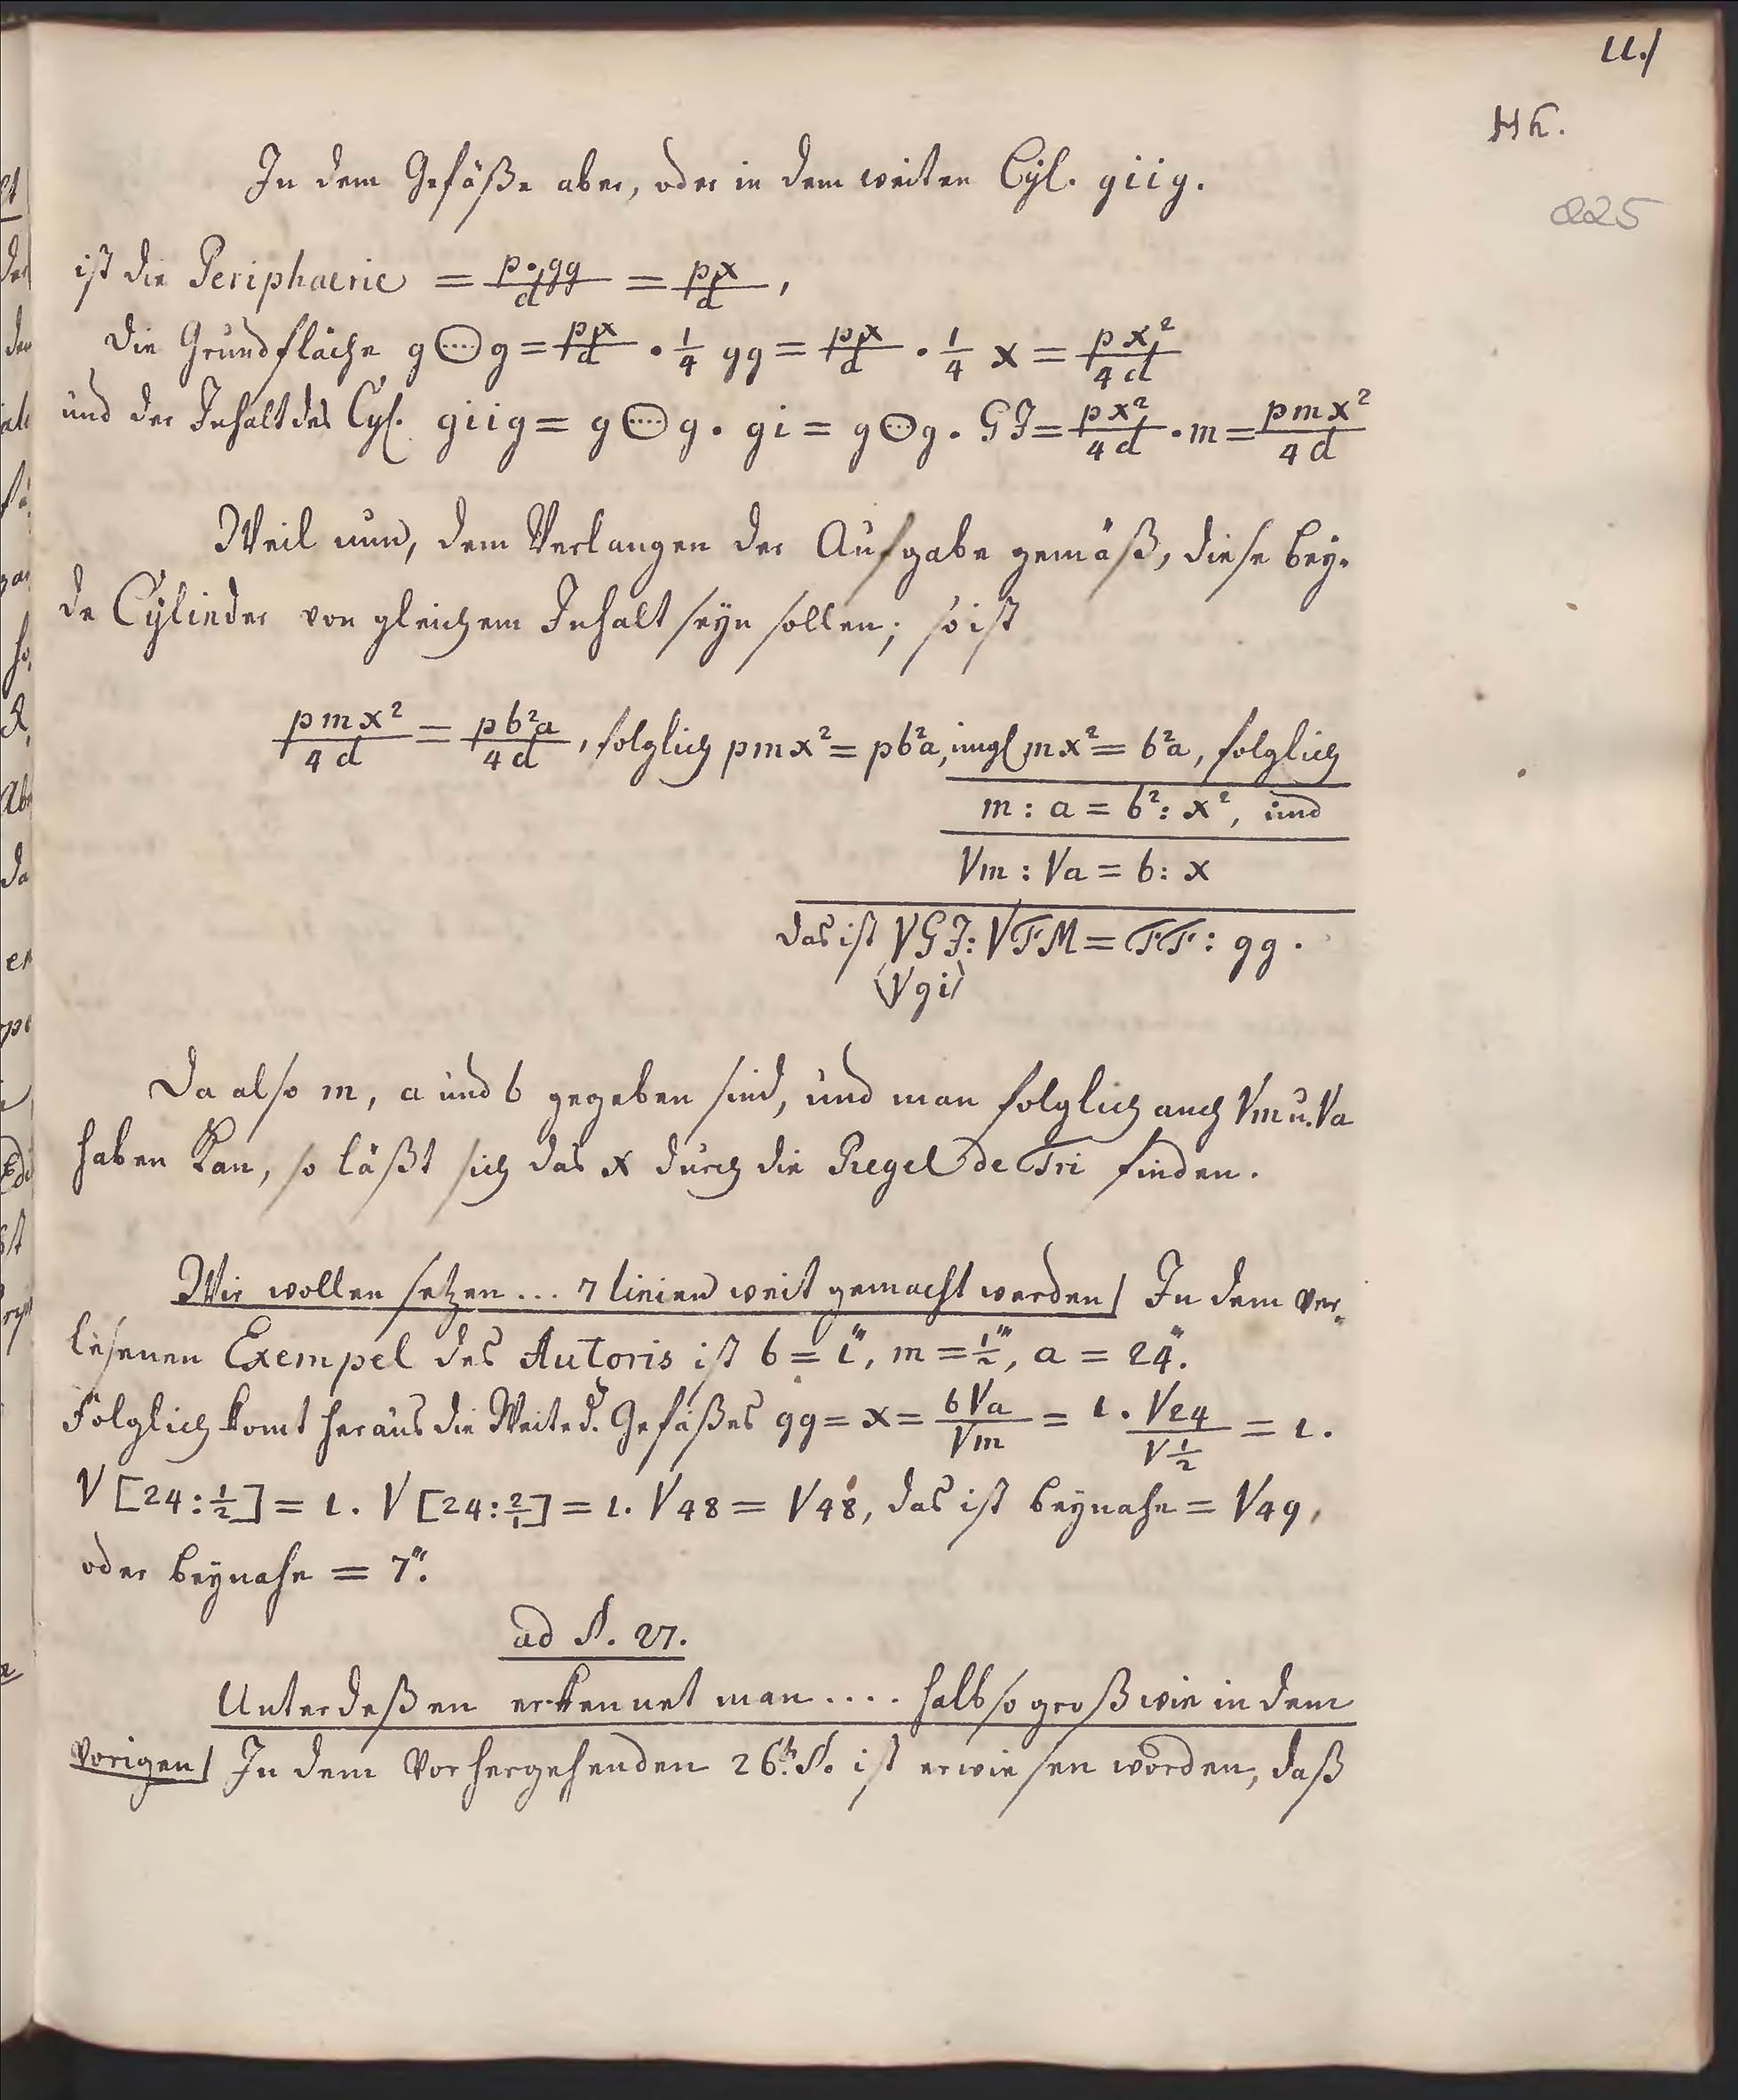 11./
HK.
225
In dem Gefäße aber, oder in dem weiten Cyl. giig.
ist die Peripherie = p·gg/d = px/d,
die Grundfläche g⊙g = px/d · 1/4 gg = px/d · 1/4 x = px²/4d
und der Inhalt des Cyl. giig = g⊙g · gi = g⊙g · GI = px²/4d · m = pmx²/4d
Weil nun, dem Verlangen der Aufgabe gemäß, diese bey-
de Cylinder von gleichem Inhalt seyn sollen; so ist
pmx²/4d = pb²a/4d, folglich pmx² = pb²a, imgl mx² = b²a, folglich
m : a = b² : x², und
√m : √a = b : x
das ist √GI : √FM = FF : gg.
(√gi)
Da also m, a und b gegeben sind, und man folglich auch √m u. √a
haben kan, so läßt sich das x durch die Regel de Tri finden.
Wir wollen setzen ... 7 linien weit gemacht werden/ In dem ver-
lesenen Exempel des Autoris ist b = 1''', m = 1/2''', a = 24'''.
Folglich komt heraus die Weite d. Gefäßes gg = x = b√a/√m = 1 · √24/√1/2 = 1.
√[24 : 1/2] = 1. √[24 : 2/1] = 1. √48 = √48, das ist beynahe = √49,
oder beynahe = 7'''.
ad §. 27.
Unterdeßen erkennet man .... halb so groß wie in dem
vorigen/ In dem Vorhergehenden 26.t §. ist erwiesen worden, daß